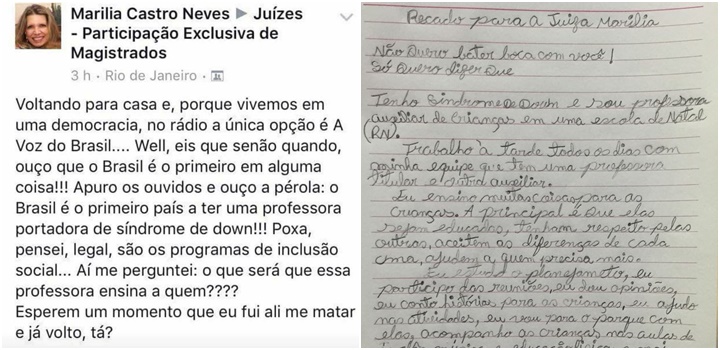 Marilia Castro Neves ▶ Juízes
- Participação Exclusiva de
Magistrados
3 h · Rio de Janeiro ·
Voltando para casa e, porque vivemos em
uma democracia, no rádio a única opção é A
Voz do Brasil.... Well, eis que senão quando,
ouço que o Brasil é o primeiro em alguma
coisa!!! Apuro os ouvidos e ouço a pérola: o
Brasil é o primeiro país a ter uma professora
portadora de síndrome de down!!! Poxa,
pensei, legal, são os programas de inclusão
social... Aí me perguntei: o que será que essa
professora ensina a quem????
Esperem um momento que eu fui ali me matar
e já volto, tá?
Recado para a Juiza Marilia
Não Quero bater boca com você!
Só Quero dizer Que
Tenho Sindrome De Down e sou professora
auxiliar de crianças em uma escola de Natal
(RN).
Trabalho à tarde todos os dias com
minha equipe que tem uma professora
titular e outra auxiliar.
Eu ensino muitas coisas para as
crianças. A principal é Que elas
sejam educadas, tenham respeito pelas
outras, aceitem as diferenças de cada
uma, ajudem a quem precisa mais.
Eu estudo o planejamento, eu
participo das reuniões, eu dou opiniões,
eu conto histórias para as crianças, eu ajudo
nas atividades, eu vou para o parque com
elas, acompanho as crianças nas aulas de